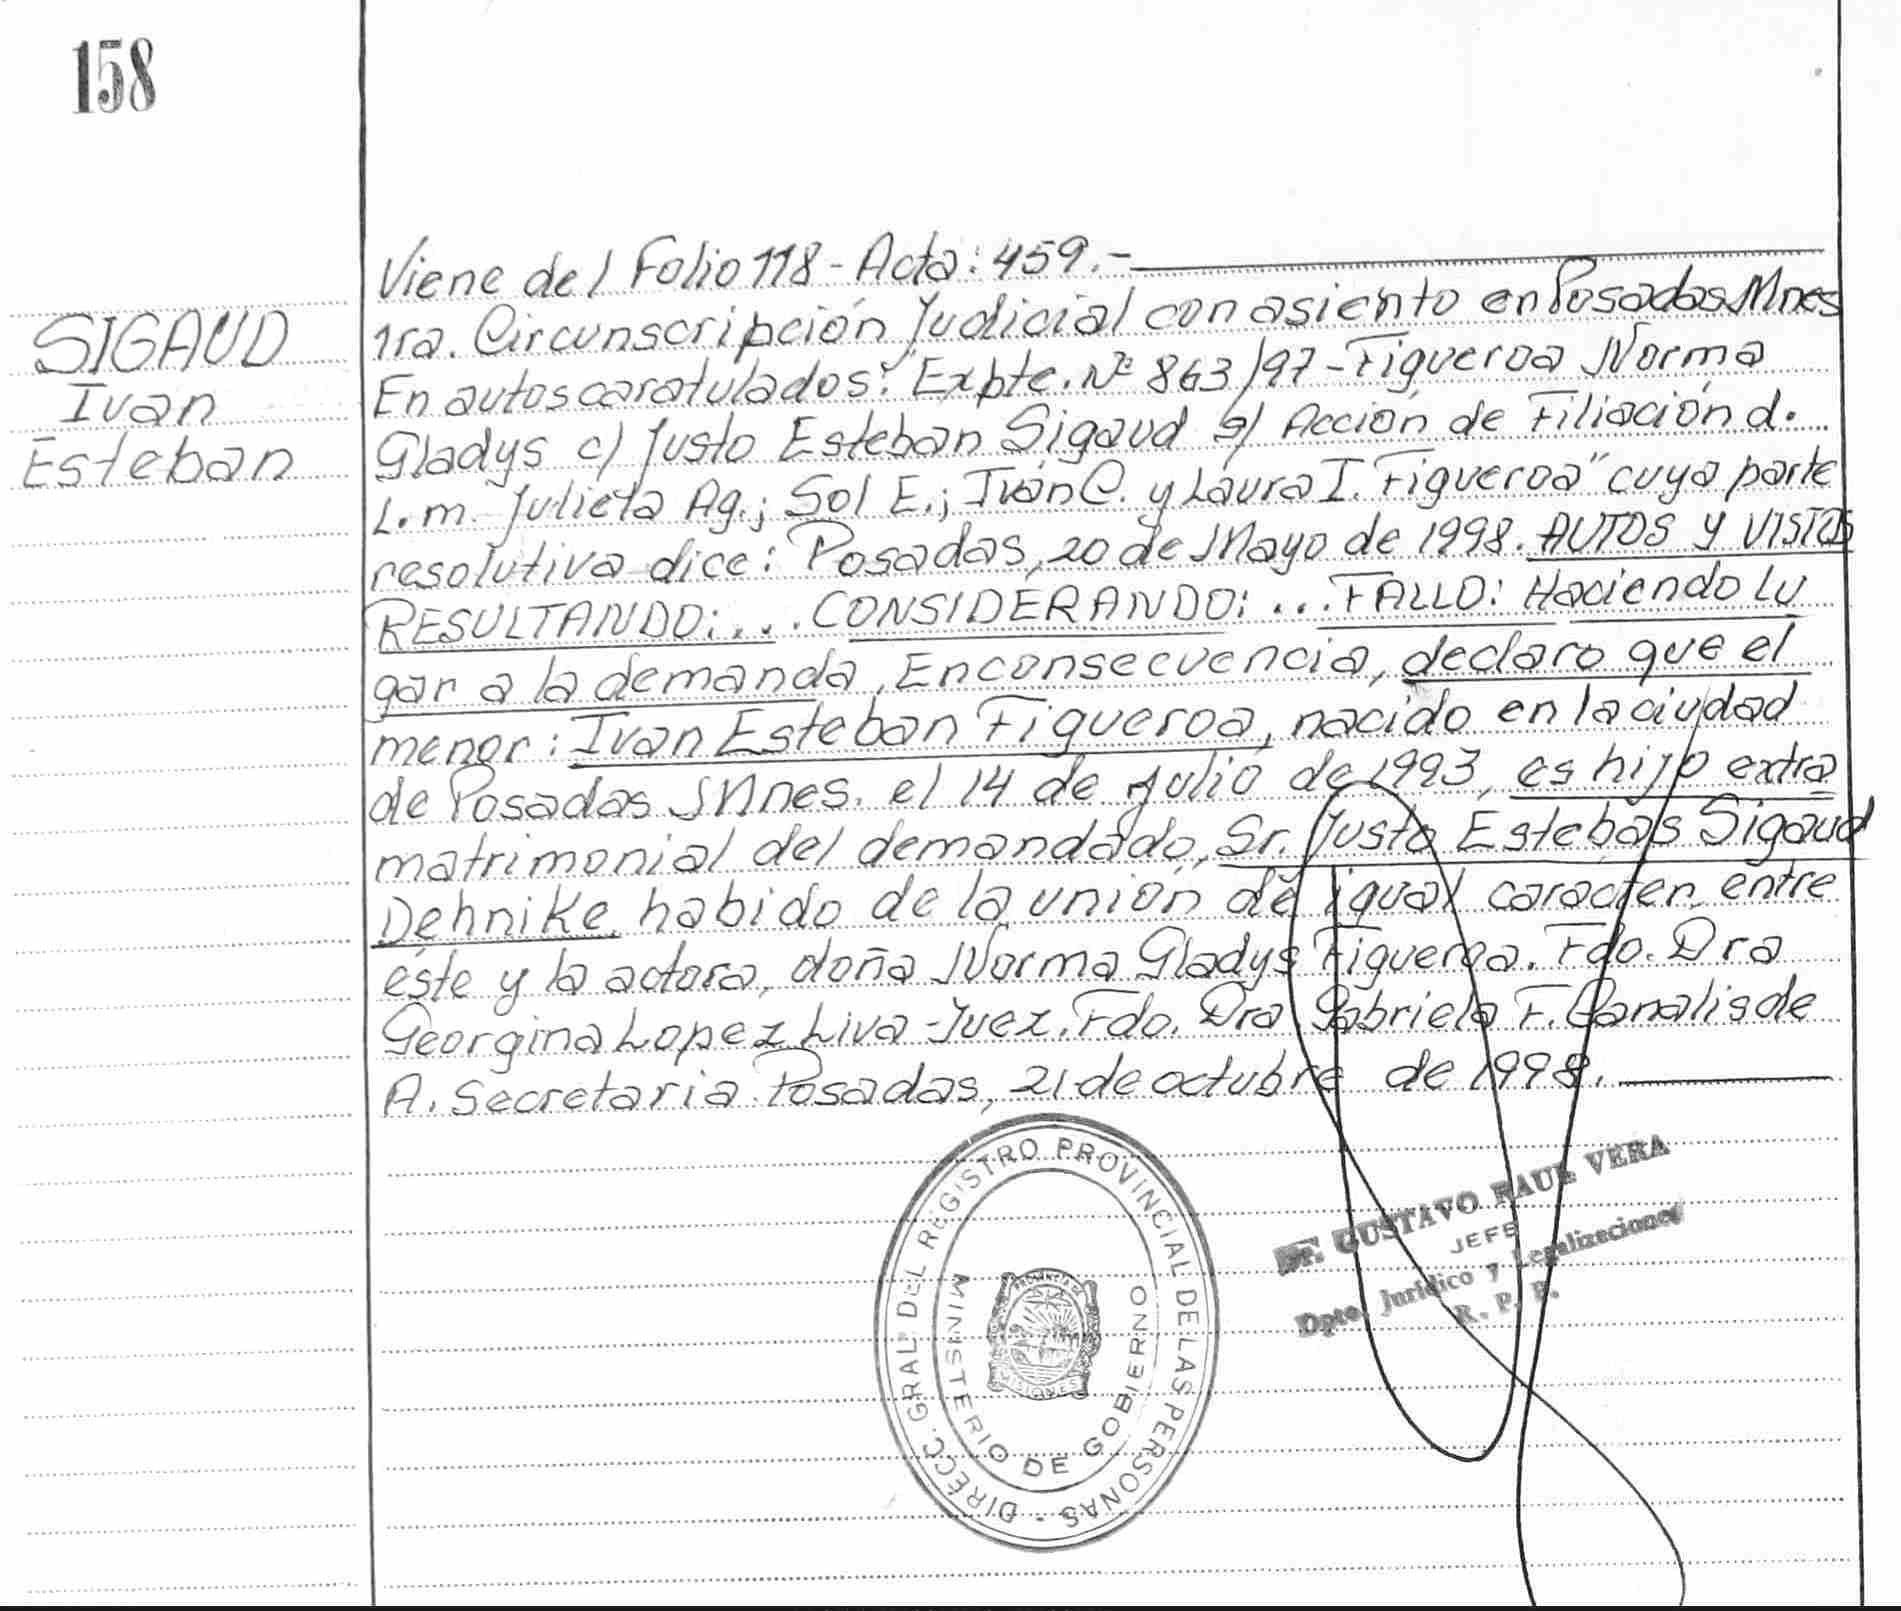 158
SIGAUD
Ivan
Esteban
Viene del Folio 118 - Acta: 459.-
1ra. Circunscripción Judicial con asiento en Posadas Mnes
En autos caratulados: "Expte. Nº 863/97 - Figueroa Norma
Gladys c/ Justo Esteban Sigaud s/ Acción de Filiación d.
L.m. Julieta Ag.; Sol E.; Iván C. y Laura I. Figueroa" cuya parte
resolutiva dice: Posadas, 20 de Mayo de 1998. AUTOS Y VISTOS
RESULTANDO:... CONSIDERANDO: ... FALLO: Haciendo lu
gar a la demanda, En consecuencia, declaro que el
menor: Ivan Esteban Figueroa, nacido en la ciudad
de Posadas Mnes. el 14 de Julio de 1993, es hijo extra
matrimonial del demandado, Sr. Justo Estebas Sigaud
Dehnike, habido de la unión de igual caracter, entre
éste y la actora, doña Norma Gladys Figueroa. Fdo. Dra
Georgina Lopez Liva - Juez. Fdo. Dra Gabriela F. Canalis de
A. Secretaria Posadas, 21 de octubre de 1998.
DIRECC. GRAL. DEL REGISTRO PROVINCIAL DE LAS PERSONAS -
MINISTERIO DE GOBIERNO
PROVINCIA D
MISIONES
Dr. GUSTAVO RAUL VERA
JEFE
Dpto. Jurídico y Legalizaciones
R. P. P.